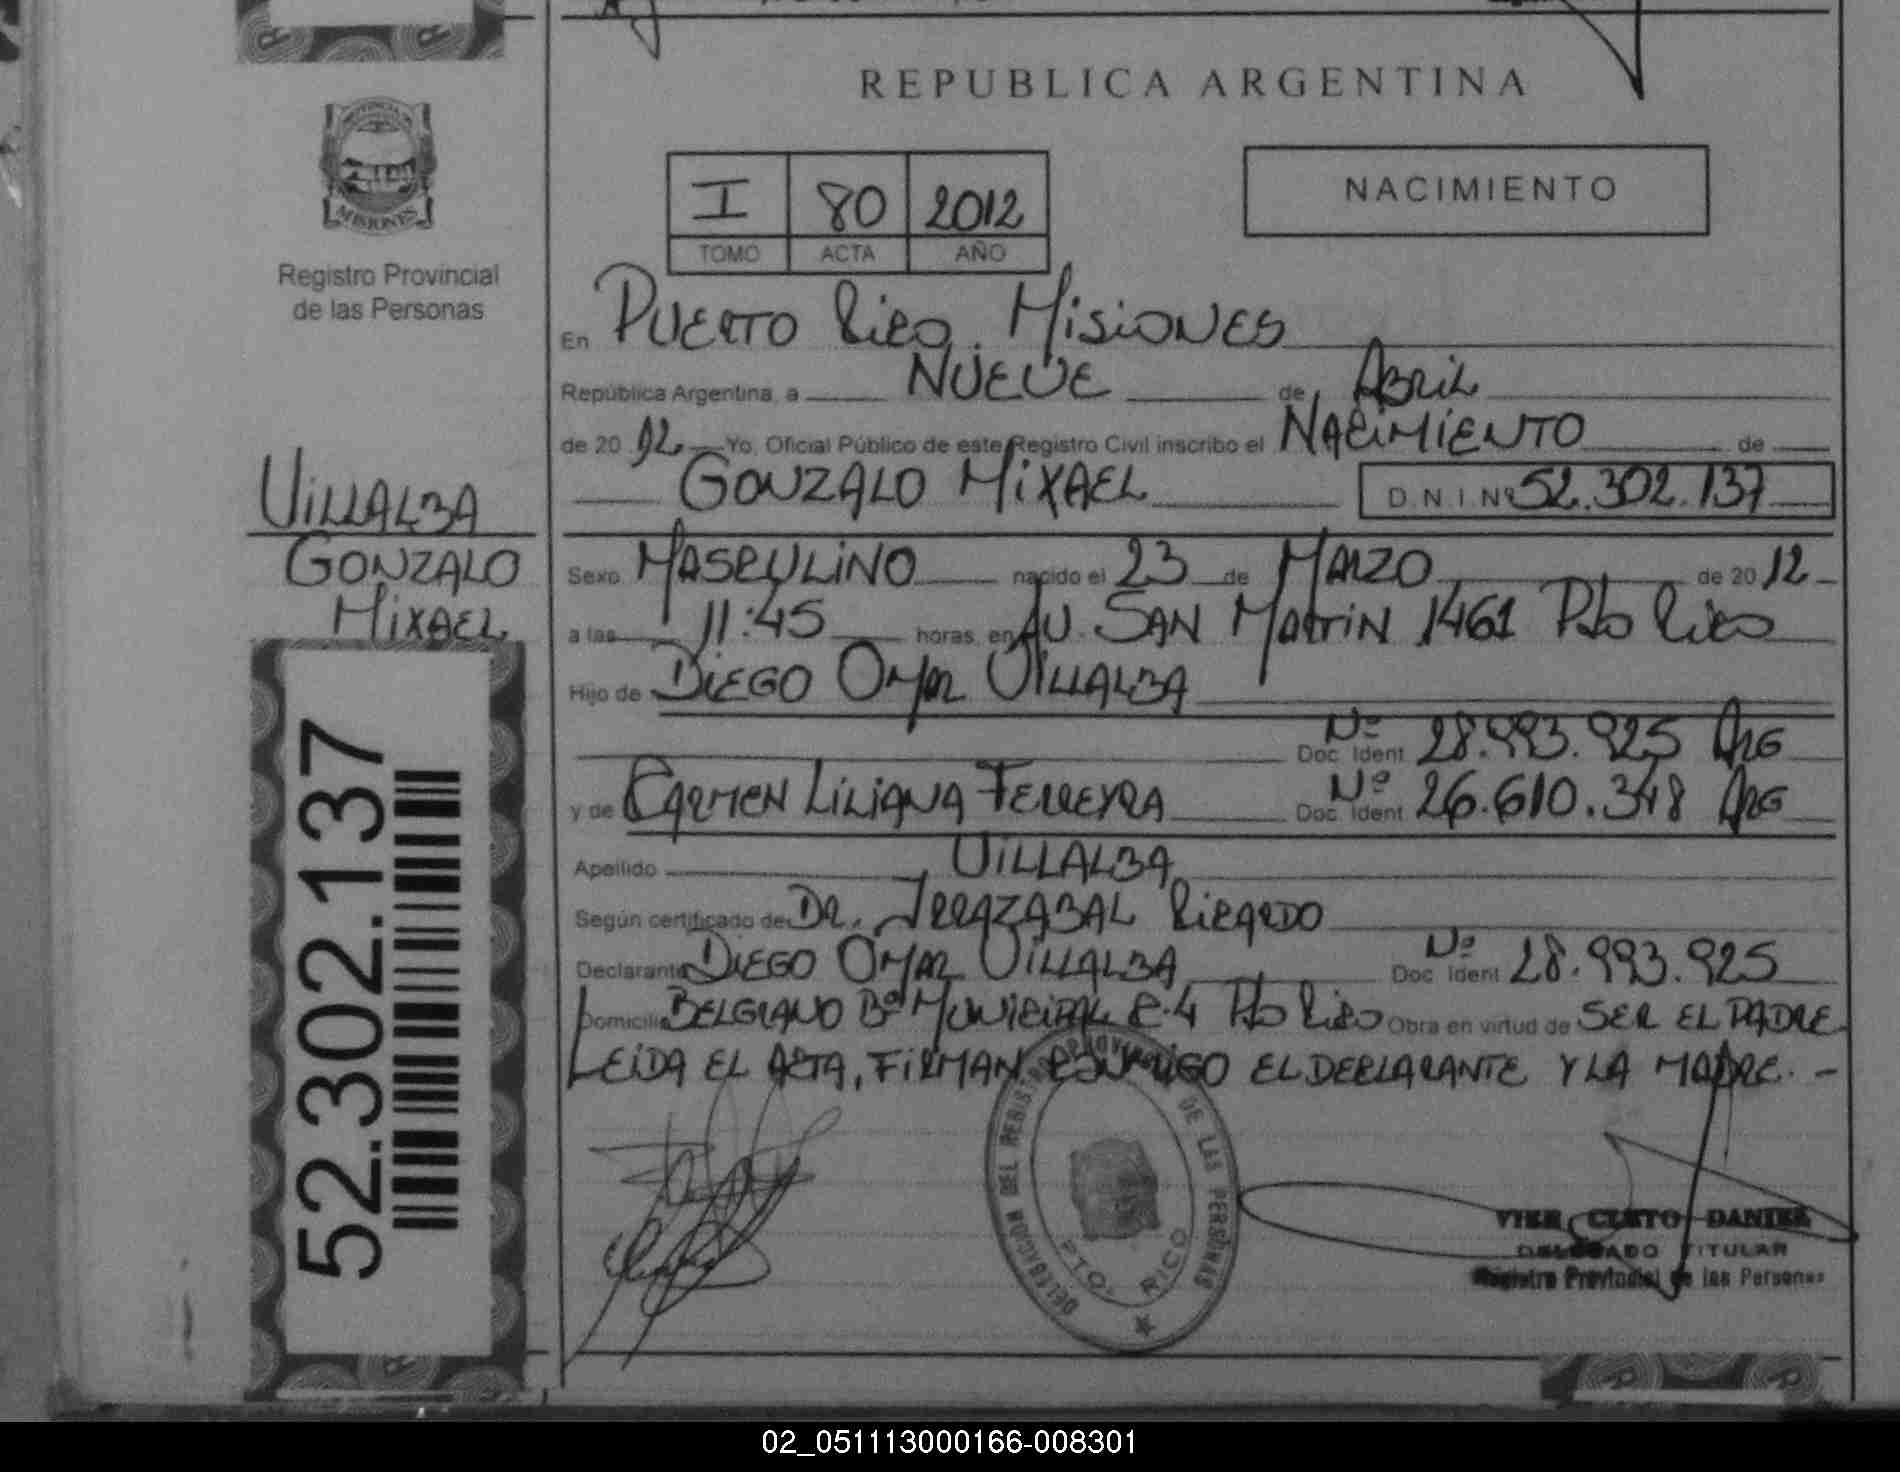 REPUBLICA ARGENTINA
PROVINCIA DE
MISIONES
Registro Provincial
de las Personas
I 80 2012
TOMO ACTA AÑO
NACIMIENTO
En PUERTO RICO. MISIONES
República Argentina, a NUEVE de ABRIL
de 2012 Yo, Oficial Público de este Registro Civil inscribo el NACIMIENTO de
GONZALO MIXAEL D.N.I. Nº 52.302.137
VILLALBA
GONZALO
MIXAEL
Sexo MASCULINO nacido el 23 de MARZO de 2012
a las 11:45 horas, en AV. SAN MARTIN 1461 Pto RICO
Hijo de DIEGO OMAR VILLALBA
Nº
Doc. Ident. 28.993.925 ARG
y de CARMEN LILIANA FERREYRA Nº Doc. Ident. 26.610.348 ARG
Apellido VILLALBA
Según certificado de DR. IRRAZABAL RICARDO
Declarante DIEGO OMAR VILLALBA Nº Doc. Ident. 28.993.925
Domicilio BELGRANO Bº MUNICIPAL C.4 Pto RICO Obra en virtud de SER EL PADRE
LEIDA EL ACTA, FIRMAN CONMIGO EL DECLARANTE Y LA MADRE. -
52.302.137
DELEGACION DEL REGISTRO PROVINCIAL DE LAS PERSONAS
PTO. RICO
VIER CLETO DANIEL
DELEGADO TITULAR
Registro Provincial de las Personas
02_051113000166-008301